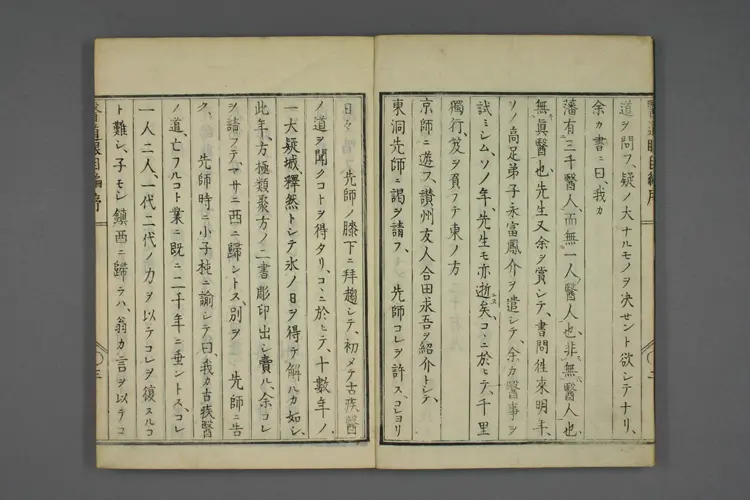 道ヲ問フ、疑ノ大ナルモノヲ決セント欲シテナリ、
余カ書ニ曰、我カ
藩有三千醫人、而無一人醫人也、非無醫人也、
無眞醫也、先生又余ヲ賞シテ、書問徃來明年、
ソノ高足弟子永富鳳介ヲ遣シテ、余カ醫事ヲ
試ミシム、ソノ年、先生モ亦逝矣、コヽニ於ヒテ、千里
獨行、笈ヲ負フテ東ノ方
京師ニ遊フ、讃州友人合田求吾ヲ紹介トシテ、
東洞先師ニ謁ヲ請フ、先師コレヲ許ス、コレヨリ
醫道眼目編序
日々先師ノ膝下ニ拜趨シテ、初メテ古疾醫
ノ道ヲ聞クコトヲ得タリ、コヽニ於ヒテ、十數年ノ
一大疑城、釋然トシテ氷ノ日ヲ得テ解ルカ如シ、
此年、方極類聚方ノ二書彫印出シ賣ル、余コレ
ヲ請フテ、マサニ西ニ歸ントス、別ヲ先師ニ告
ク、先師時ニ小子ニ諭シテ曰、我カ古疾醫
ノ道、亡フルコト業ニ既ニ二千年ニ垂ントス、コレ
一人二人、一代二代ノ力ヲ以テコレヲ復スルコ
ト難シ、子モシ鎭西ニ歸ラハ、翁カ言ヲ以テコ
醫道眼目編序
三